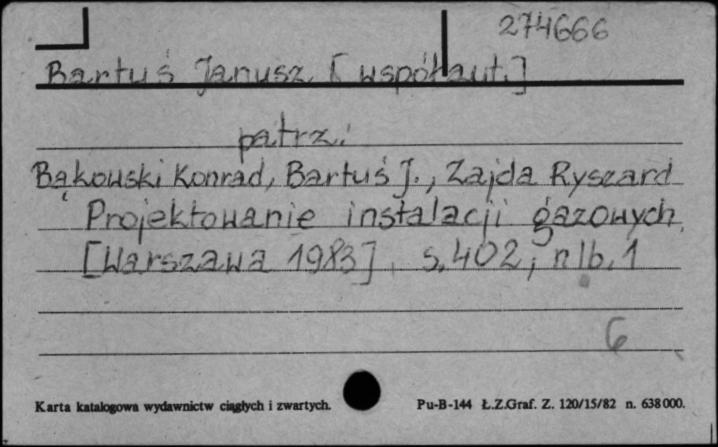 274666
Bartuś Janusz. [współaut.]
patrz:
Bąkowski Konrad, Bartuś J., Zajda Ryszard
Projektowanie instalacji gazowych.
[Warszawa 1983]. s. 402, nlb. 1
6
Karta katalogowa wydawnictw ciągłych i zwartych. Pu-B-144 Ł.Z.Graf. Z. 120/15/82 n. 638000.